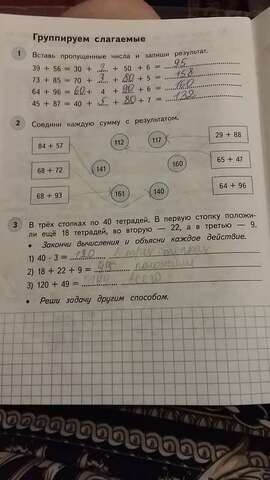 Группируем слагаемые
1 Вставь пропущенные числа и запиши результат.
39 + 56 = 30 + 9 + 50 + 6 = 95
73 + 85 = 70 + 3 + 80 + 5 = 158
64 + 96 = 60 + 4 + 90 + 6 = 160
45 + 87 = 40 + 5 + 80 + 7 = 132
2 Соедини каждую сумму с результатом.
84 + 57 112 117 29 + 88
68 + 72 141 160 65 + 47
68 + 93 161 140 64 + 96
3 В трёх стопках по 40 тетрадей. В первую стопку положи-
ли ещё 18 тетрадей, во вторую — 22, а в третью — 9.
• Закончи вычисления и объясни каждое действие.
1) 40 · 3 = 120
2) 18 + 22 + 9 = 49 положили
3) 120 + 49 = всего
• Реши задачу другим способом.